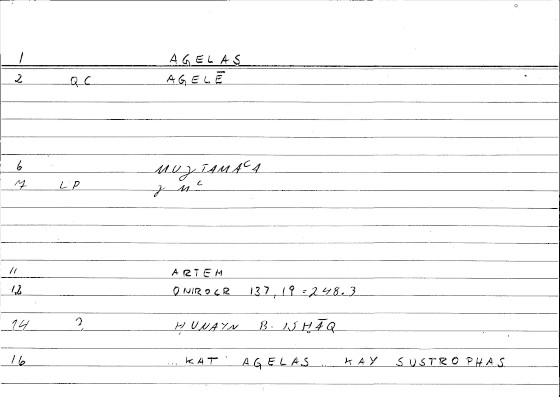 1 AGELAS
2 QC AGELĒ
6 MUǦTAMAᶜA
7 LP ǧ Mᶜ
11 ARTEM
12 ONIROCR 137,19 = 248.3
14 ? ḤUNAYN B. ISḤĀQ
16 ... KAT' AGELAS ... KAY SUSTROPHAS